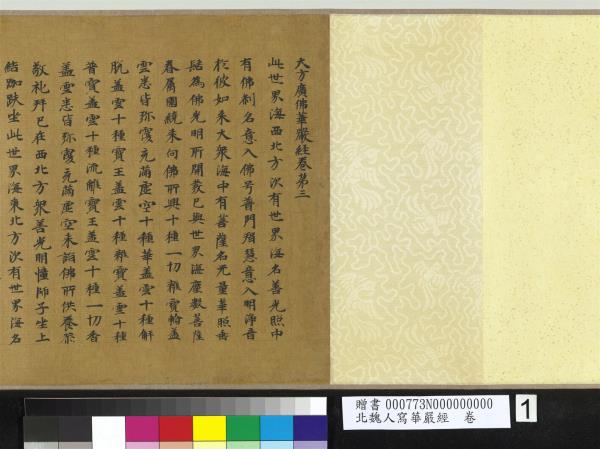 大方廣佛華嚴經卷第三
此世界海西北方次有世界海名善光照中
有佛刹名意入佛号普門智慧意入明淨音
於彼如来大衆海中有菩薩名无量華照垂
髻為佛光明所開發已與世界海塵數菩薩
眷屬圍繞来向佛所興十種一切雜寶輪蓋
雲悉皆弥覆充滿虛空十種華蓋雲十種解
脱蓋雲十種寶王蓋雲十種雜寶蓋雲十種
普寶蓋雲十種流離寶王蓋雲十種一切香
蓋雲悉皆弥覆充滿虛空来詣佛所供養恭
敬礼拜已在西北方衆善光明幢師子座上
結跏趺坐此世界海東北方次有世界海名
贈書 000773N000000000
北魏人寫華嚴經 卷
1